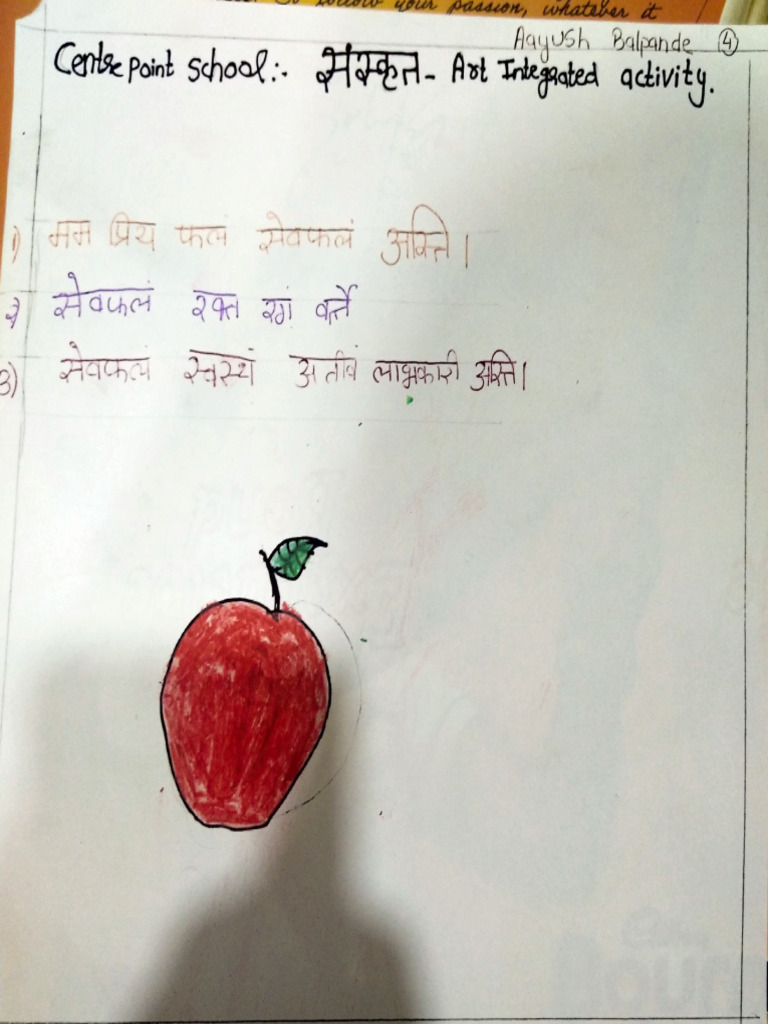 to follow your passion, whatever it
Aayush Balpande 4
Centre point school:- संस्कृत - Art Integrated activity.
1) मम प्रिय फलं सेवफलं अस्ति।
2) सेवफलं रक्त रंग वर्त्ते
3) सेवफलं स्वस्थं अतीवं लाभकारी अस्ति।